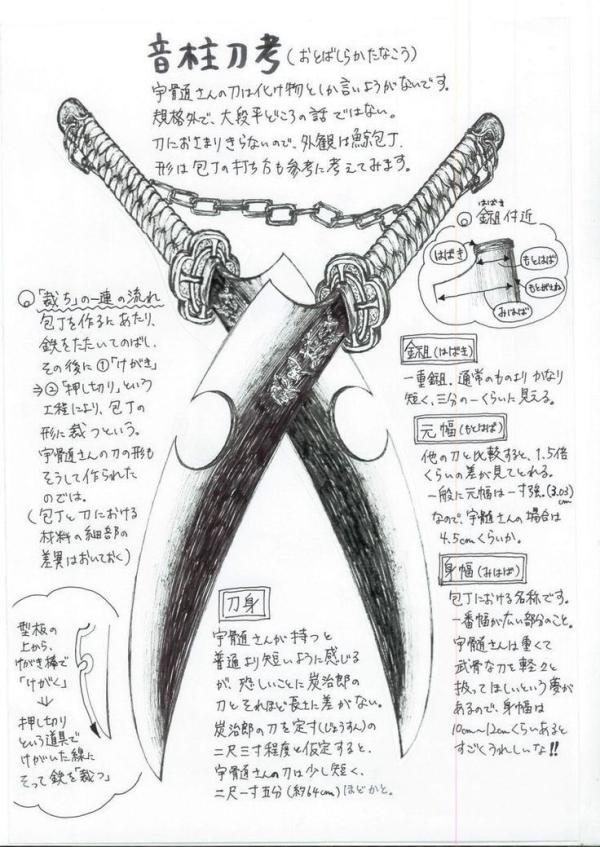 音柱刀考(おとばしらかたなこう)
宇髄さんの刀は化け物としか言いようがないです。
規格外で、大段平どころの話ではない。
刀におさまりきらないので、外観は鯨包丁、
形は包丁の打ち方も参考に考えてみます。
はばき
金祖付近
はばき
もとはば
もとがさね
みはば
「裁ち」の一連の流れ
包丁を作るにあたり、
鉄をたたいてのばし、
その後に①「けがき」
⇒②「押し切り」という
工程により、包丁の
形に裁つという。
宇髄さんの刀の形も
そうして作られた
のでは。
(包丁と刀における
材料の細部の
差異はおいておく)
金祖(はばき)
一重金祖、通常のものよりかなり
短く、三分の一くらいに見える。
元幅(もとはば)
他の刀と比較すると、1.5倍
くらいの差が見てとれる。
一般に元幅は一寸強。(3.03)cm
なので、宇髄さんの場合は
4.5cmくらいか。
身幅(みはば)
包丁における名称です。
一番幅が広い部分のこと。
宇髄さんは重くて
武骨な刀を軽々と
扱ってほしいという夢が
あるので、身幅は
10cm〜12cmくらいあると
すごくうれしいな!!
刀身
宇髄さんが持つと
普通より短いように感じる
が、恐しいことに炭治郎の
刀とそれほど長土に差がない。
炭治郎の刀を定寸(じょうすん)の
二尺三寸程度と仮定すると、
宇髄さんの刀は少し短く、
二尺一寸五分(約64cm)ほどかと。
型板の
上から、
けがき棒で
「けがく」
↓
押し切り
という道具で
けがいた線に
そって鉄を「裁つ」